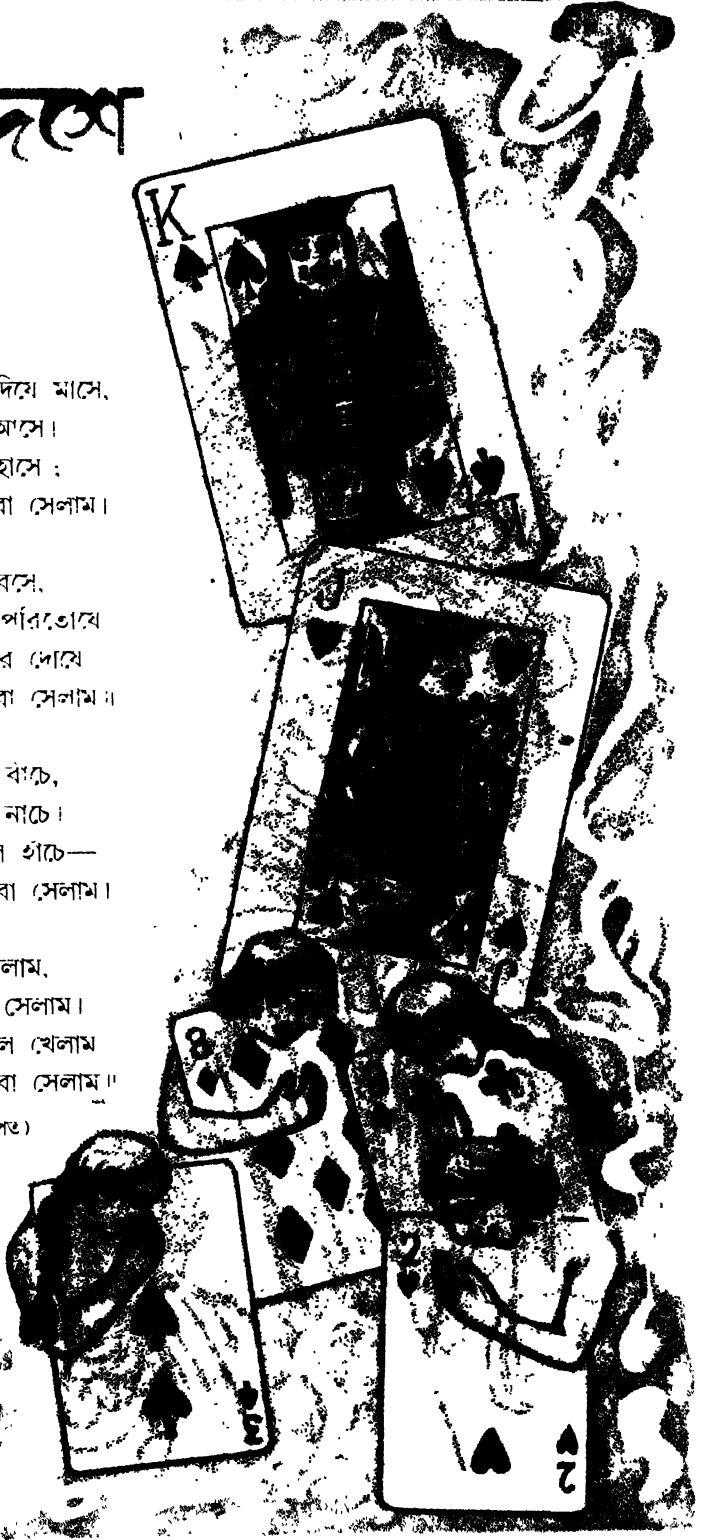 দেশে
দিয়ে মাসে,
আসে।
হাসে ;
বা সেলাম।
বসে,
পরিতোষে
র দোষে
বা সেলাম॥
বাঁচে,
নাচে।
হাঁচে—
বা সেলাম।
লাম,
সেলাম।
ল খেলাম
বা সেলাম॥
K
K
J
8
2
2
3